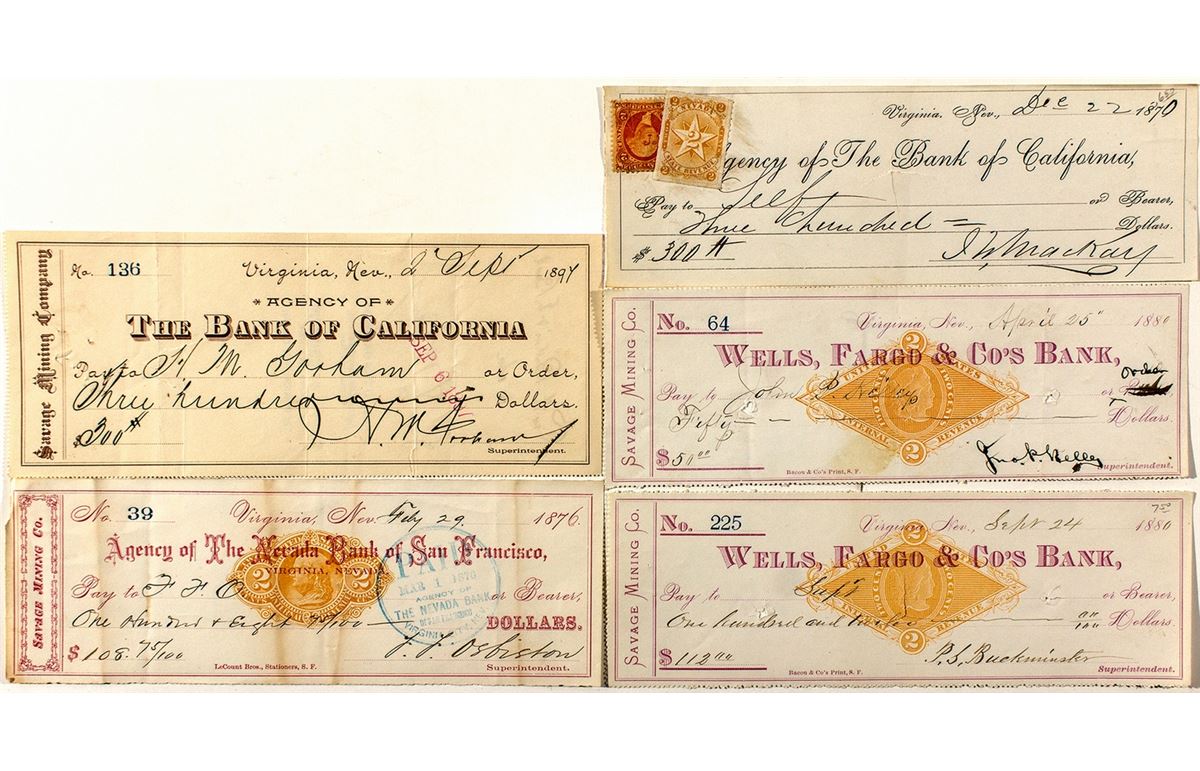 Savage Mining Company
No. 136 Virginia, Nev., 2 Sept 1897
AGENCY OF
THE BANK OF CALIFORNIA
Pay to H. M. Gorham or Order,
Three hundred Dollars.
$300 H. M. Gorham
Superintendent.
SEP 6
SAVAGE MINING CO.
No. 39 Virginia, Nev. Feby 29. 1876.
Agency of The Nevada Bank of San Francisco,
VIRGINIA, NEVADA
Pay to F F O or Bearer,
One Hundred & Eight 75/100 DOLLARS.
$108.75/100 F. F. Osbiston
LeCount Bros., Stationers, S. F. Superintendent.
PAID
MAR 1 1876
AGENCY OF
THE NEVADA BANK
OF SAN FRANCISCO
VIRGINIA
2 2
Virginia, Nev., Dec 22 1870
NEVADA
2
Agency of The Bank of California,
Pay to Self or Bearer,
Three hundred = Dollars.
$300 J W Mackay
SAVAGE MINING CO.
No. 64 Virginia, Nev., April 25 1880
WELLS, FARGO & CO'S BANK,
Pay to John or Order
Fifty Dollars.
$50 00 Jno. P. Kelley
Bacon & Co's Print, S. F. Superintendent.
2
UNITED STATES
INTERNAL REVENUE
2
SAVAGE MINING CO.
No. 225 Virginia, Nev., Sept 24 1880
WELLS, FARGO & CO'S BANK,
Pay to Sept or Bearer,
One hundred and twelve 00/100 Dollars.
$112 00 P. S. Buckminster
Bacon & Co's Print, S. F. Superintendent.
2
REVENUE
2